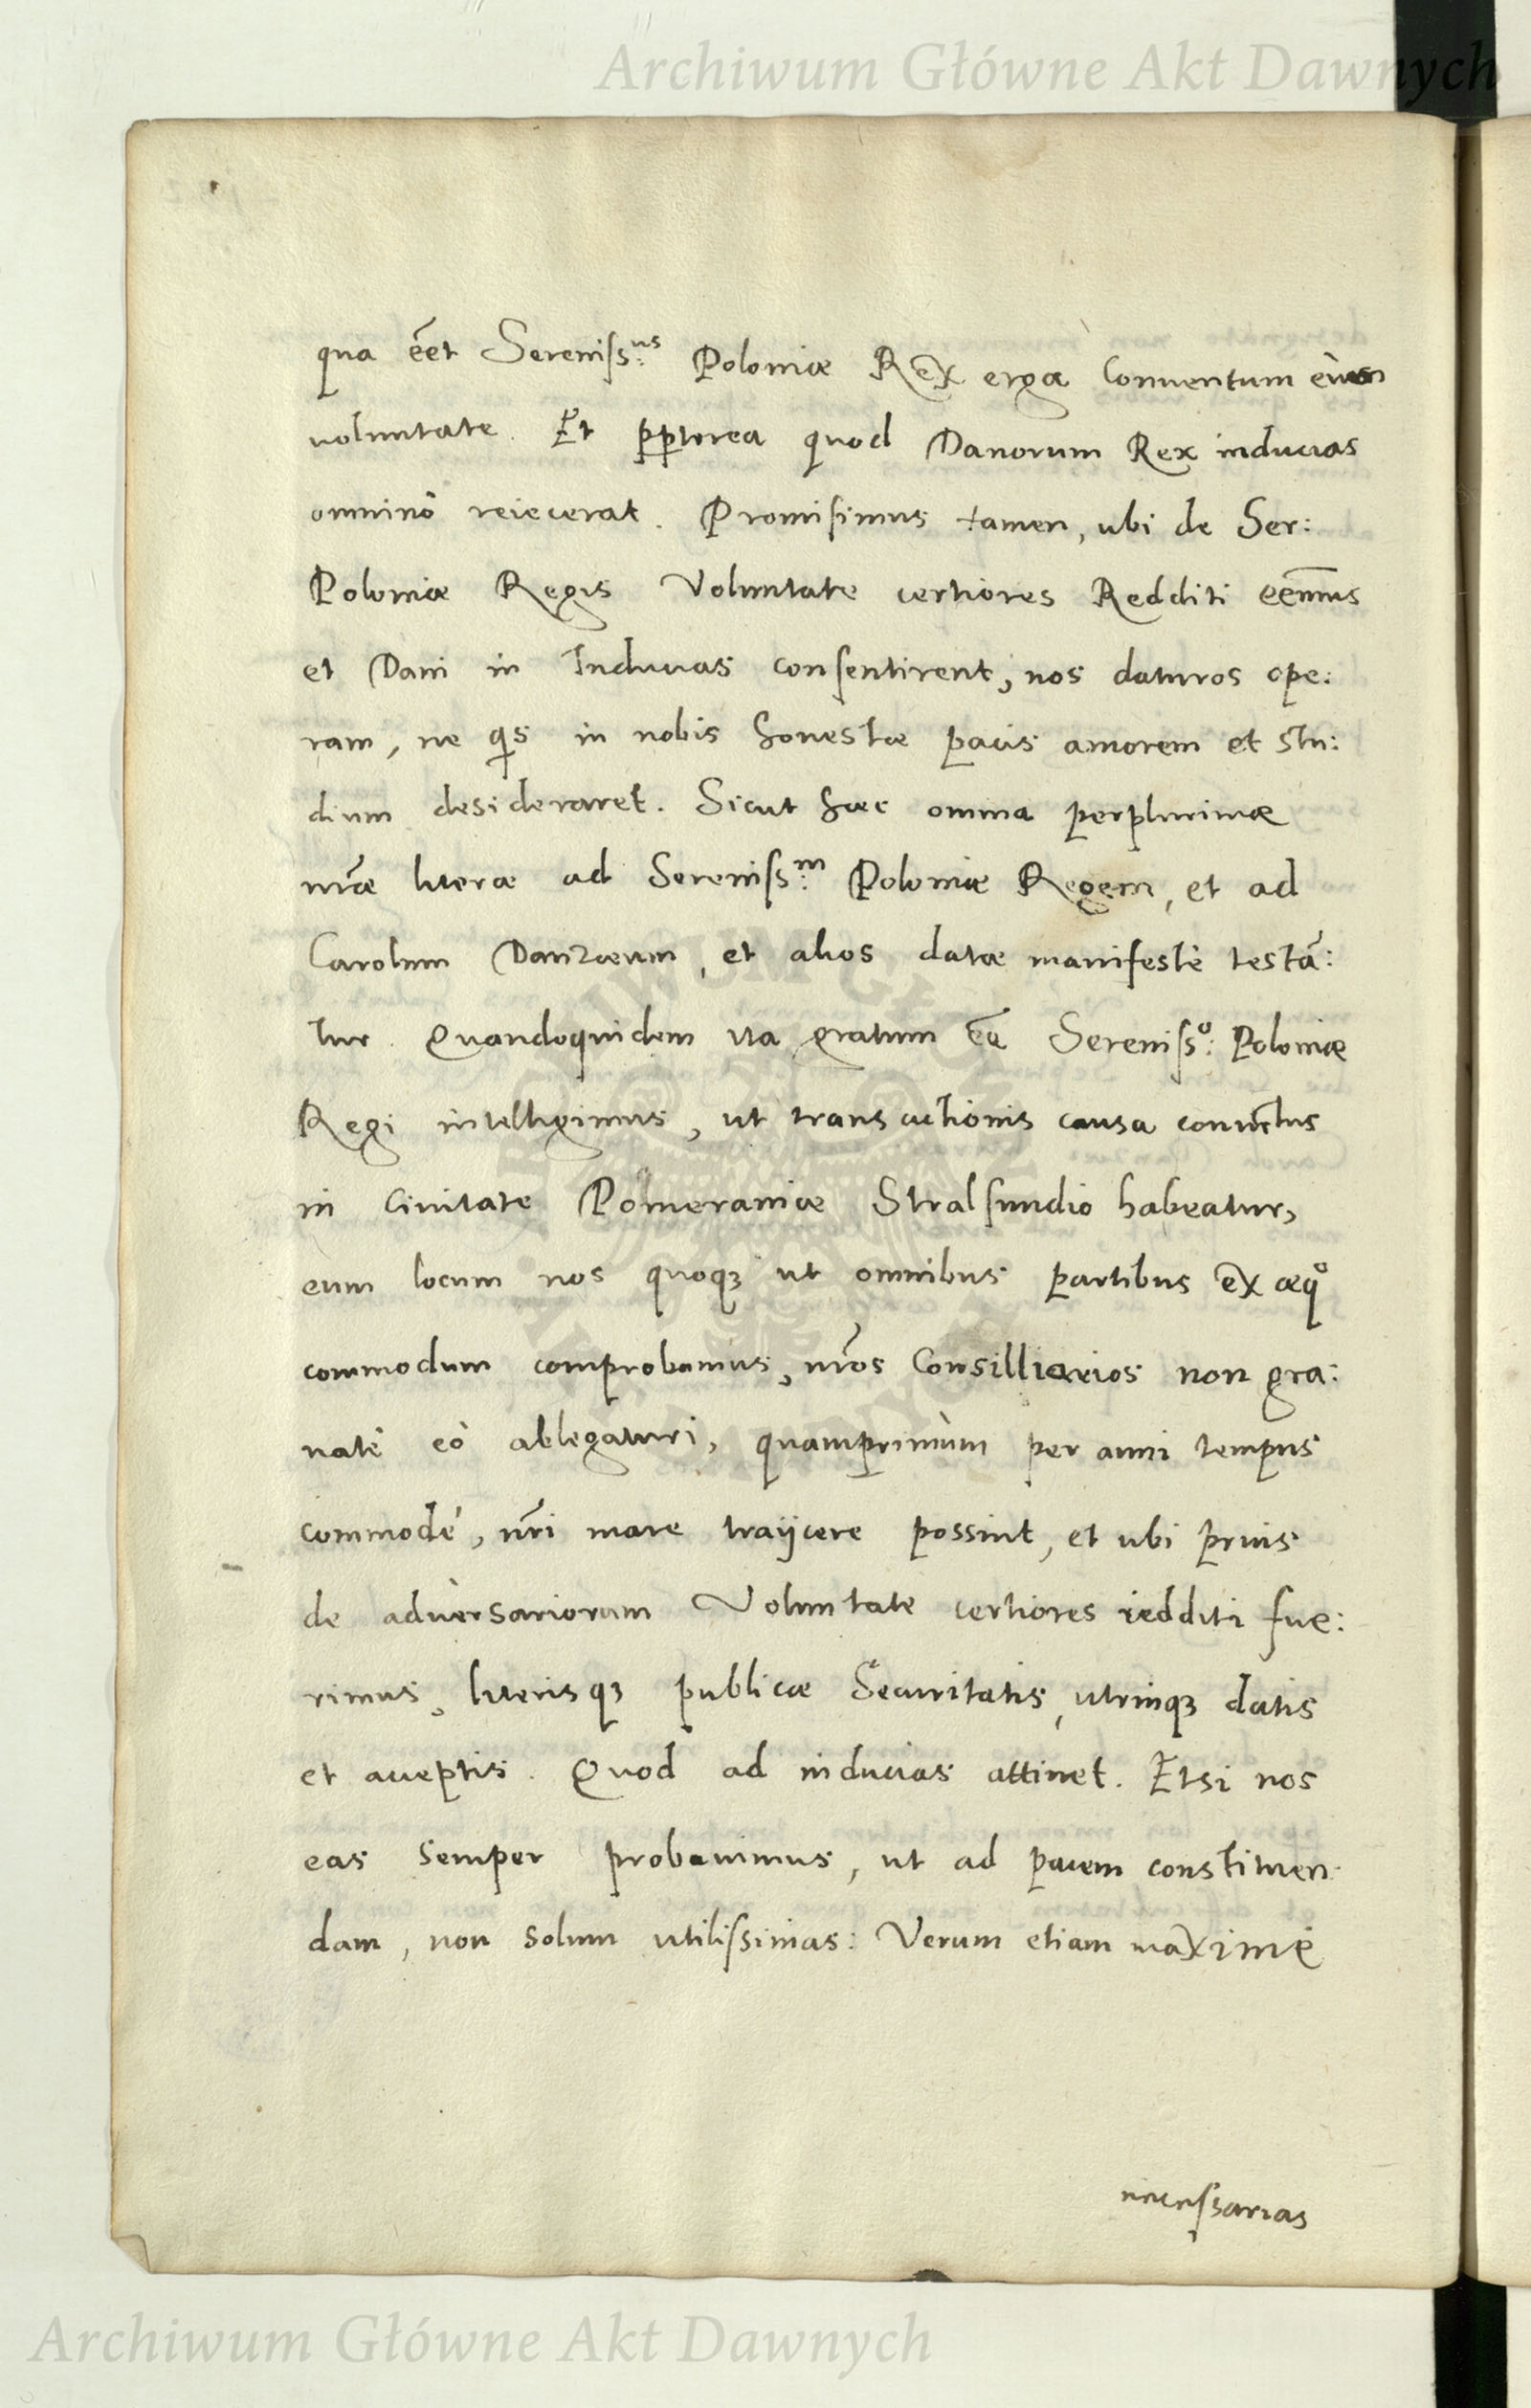 Archiwum Główne Akt Dawnych
qua eēt Sereniſs:us Poloniæ Rex erga Conuentum
uoluntate. Et ꝓpterea quod Danorum Rex inducias
omninò reiecerat. Promiſimus tamen, ubi de Ser:
Poloniæ Regis Voluntate certiores Redditi eēmus
et Dani in Inducias conſentirent, nos daturos ope:
ram, ne qs in nobis honestæ pacis amorem et stu:
dium desideraret. Sicut hæc omnia perplurimæ
nr̄æ literæ ad Sereniſs:m Poloniæ Regem, et ad
Carolum Danzæum, et alios datæ manifestè testā:
tur. Quandoquidem ita gratum eē Sereniſs:o Poloniæ
Regi intelligimus, ut transactionis causa conuētus
in Ciuitate Pomeraniæ Stralſundio habeatur,
eum locum nos quoqꝫ ut omnibus partibus ex æqo
commodum comprobamus, nr̄os Consilliarios non gra:
uatè eò ablegaturi, quamprimùm per anni tempus
commodè, nr̄i mare traijcere possint, et ubi prius
de aduersariorum Voluntate certiores redditi fue:
rimus, literisqꝫ publicæ Securitatis, utrinqꝫ datis
et acceptis. Quod ad inducias attinet. Etsi nos
eas semper probauimus, ut ad pacem constituen:
dam, non solum utiliſsimas: Verum etiam maximè
neceſsarias
Archiwum Główne Akt Dawnych